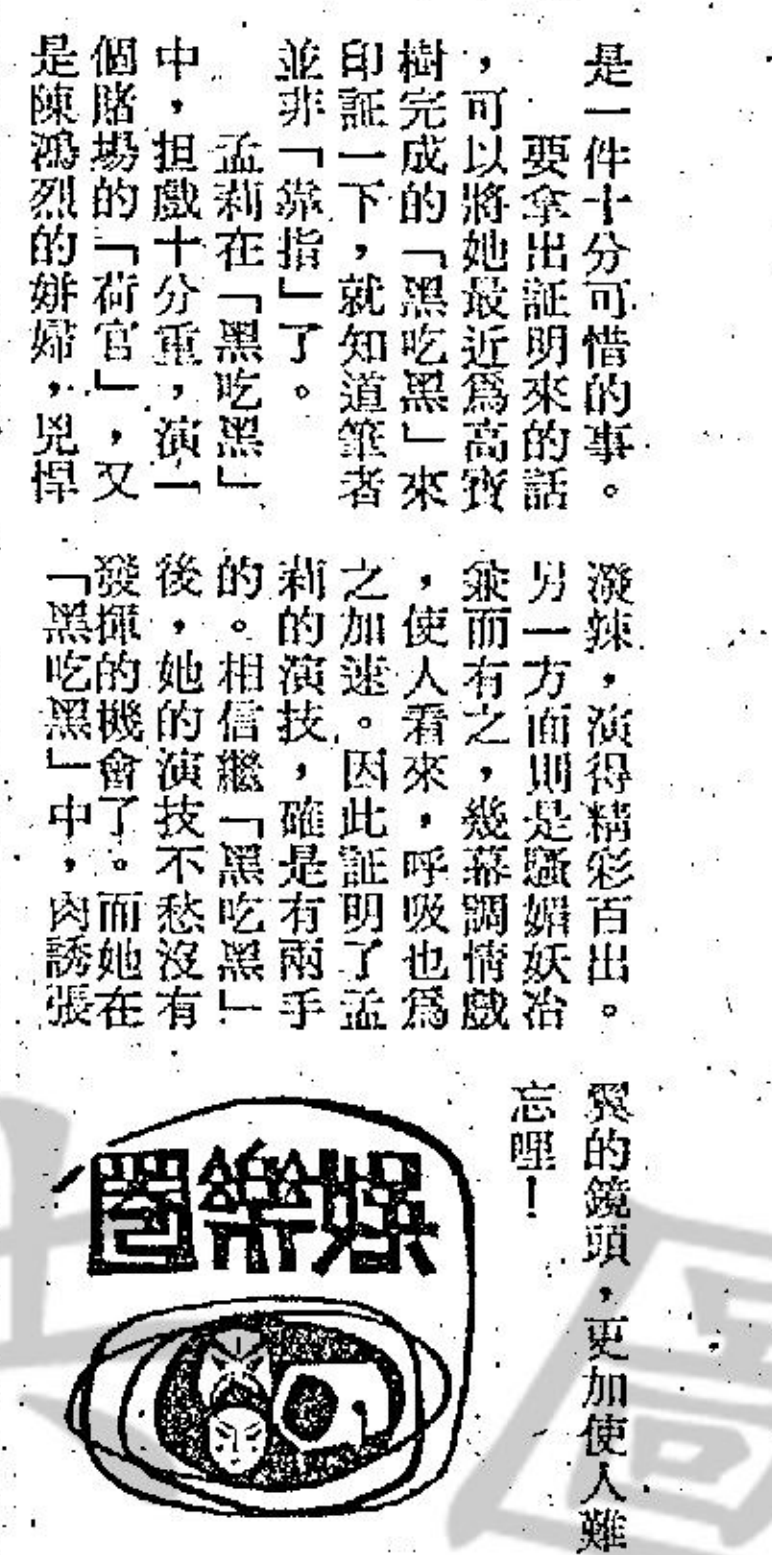 是一件十分可惜的事。
要拿出証明來的話
，可以將她最近爲高寶
樹完成的「黑吃黑」來
印証一下，就知道筆者
並非「靠指」了。
孟莉在「黑吃黑」
中，担戲十分重，演一
個賭場的「荷官」，又
是陳鴻烈的姘婦，兇悍
潑辣，演得精彩百出。
另一方面則是騷媚妖冶
兼而有之，幾幕調情戲
，使人看來，呼吸也爲
之加速。因此証明了孟
莉的演技，確是有兩手
的。相信繼「黑吃黑」
後，她的演技不愁沒有
發揮的機會了。而她在
「黑吃黑」中，肉誘張
翼的鏡頭，更加使人難
忘哩！
娛樂圈
圖